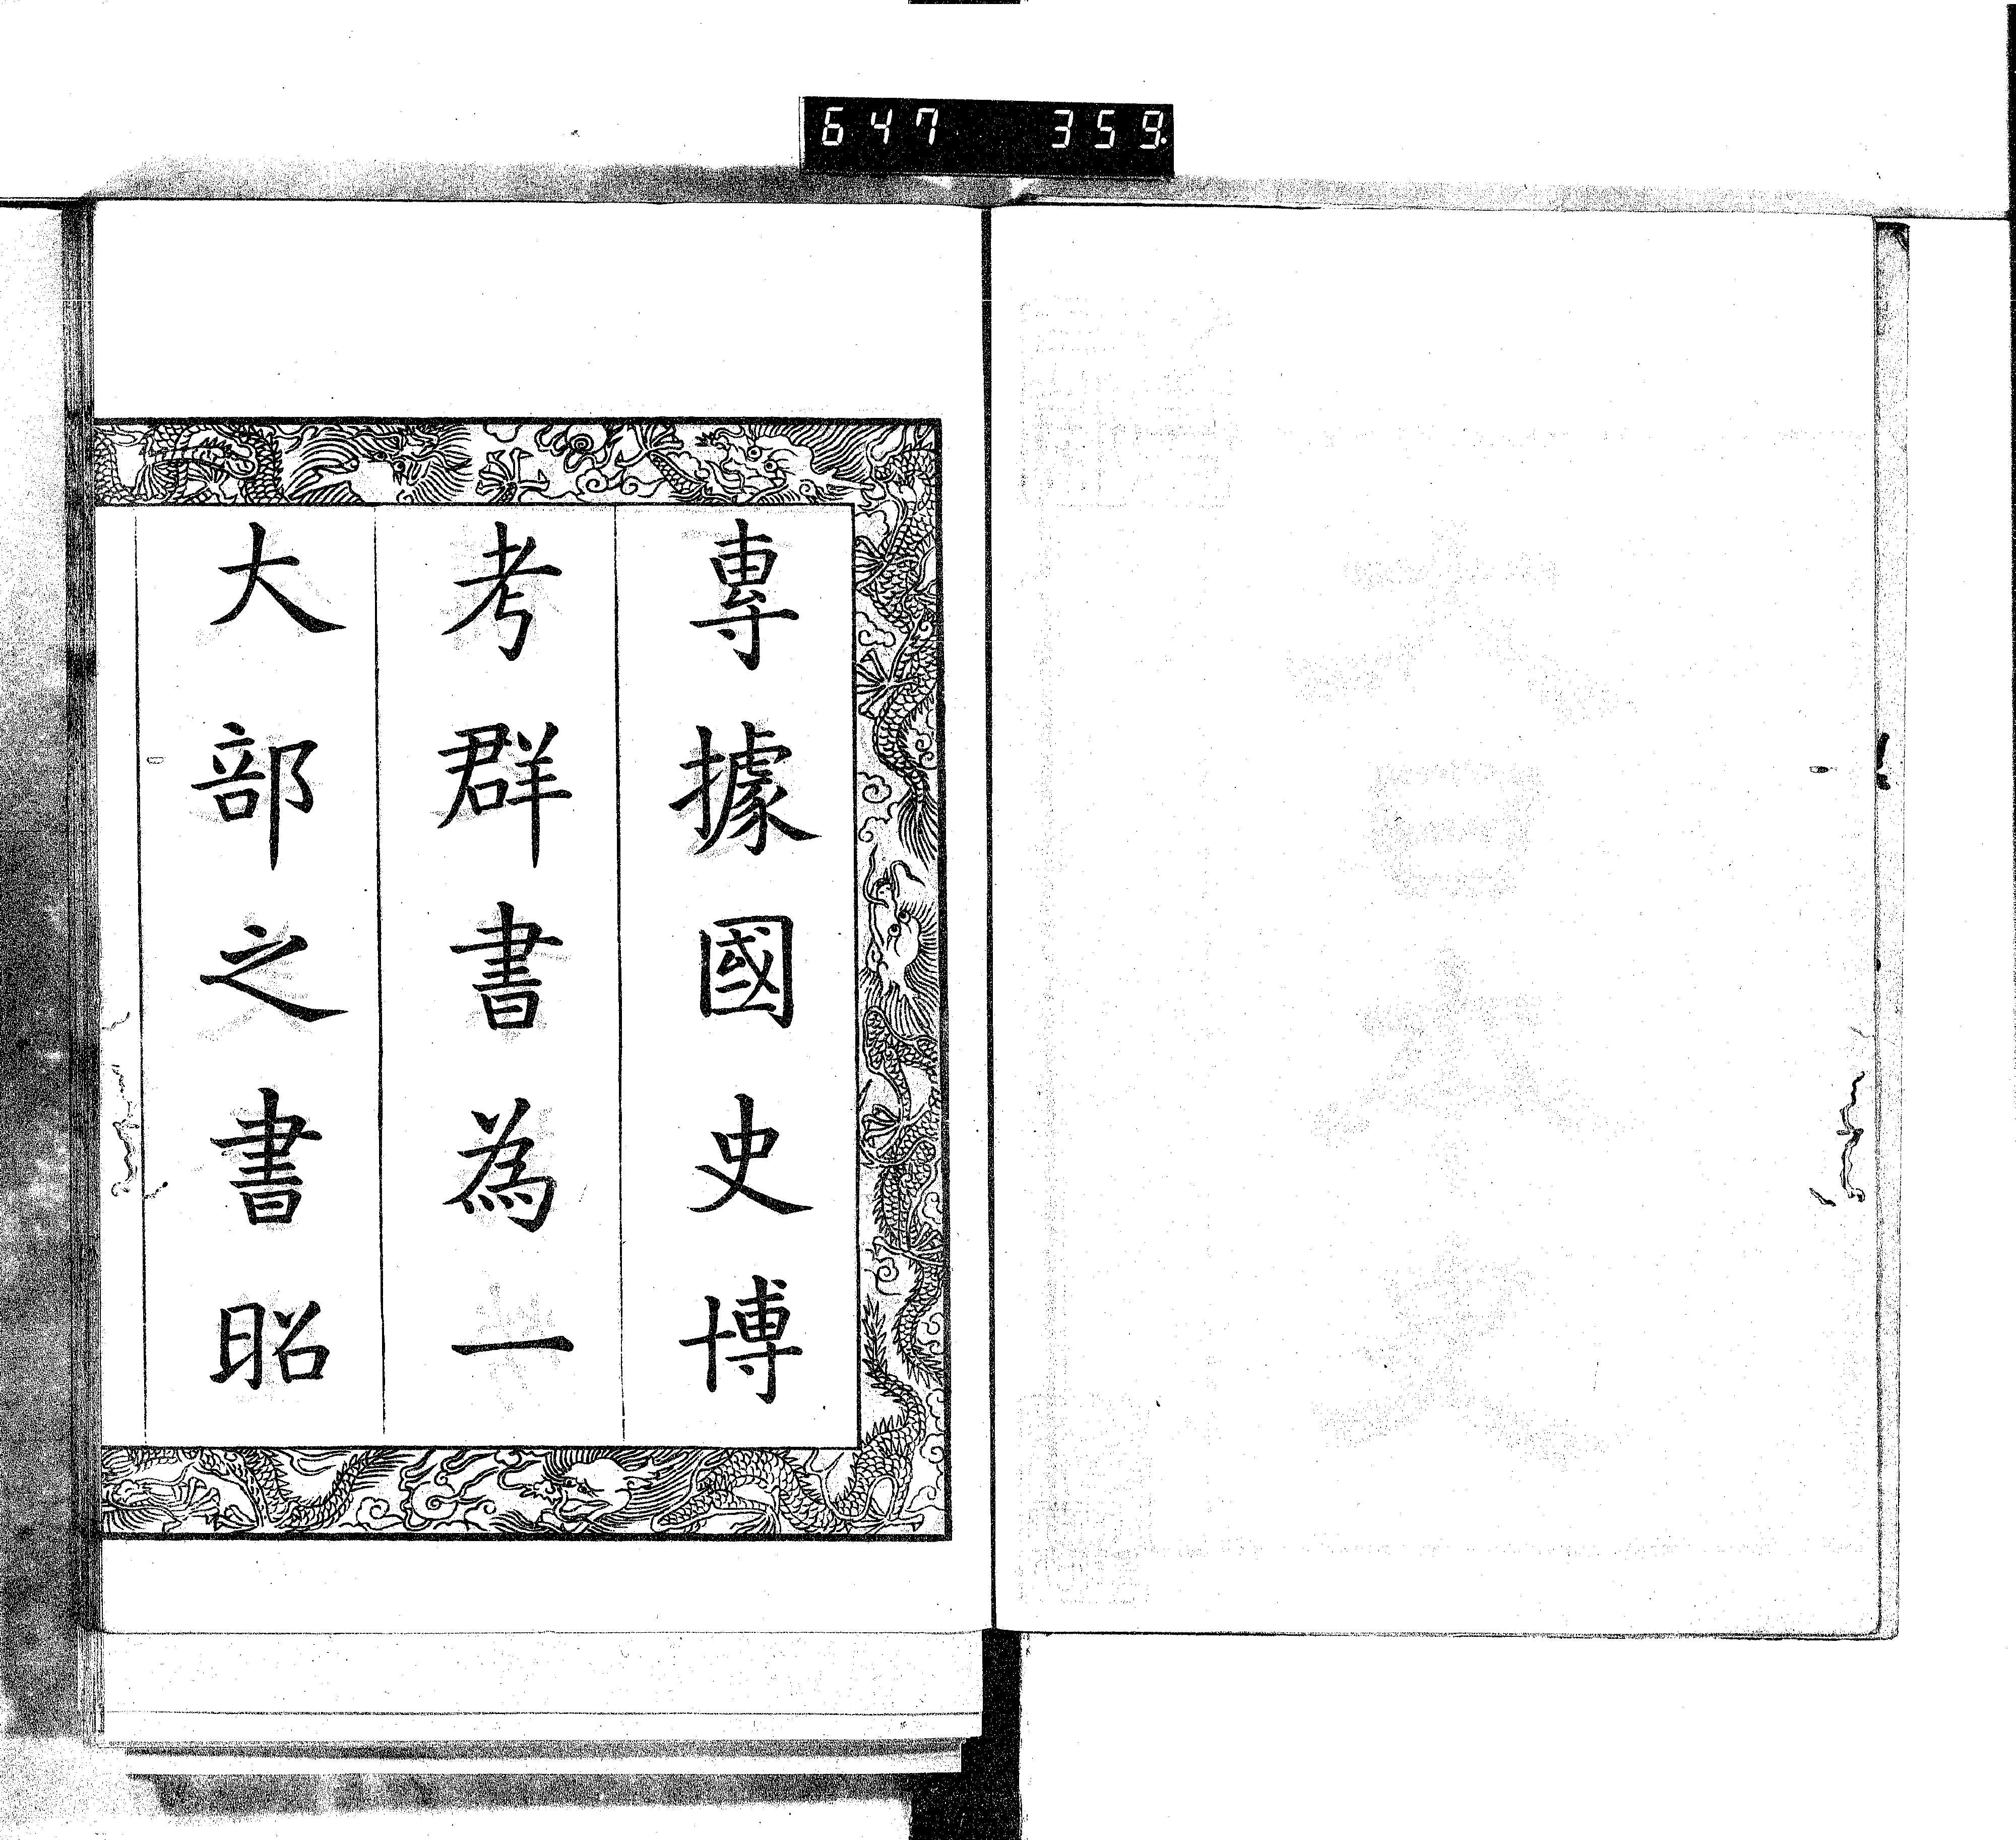 647 359
專據國史博
考群書為一
大部之書昭